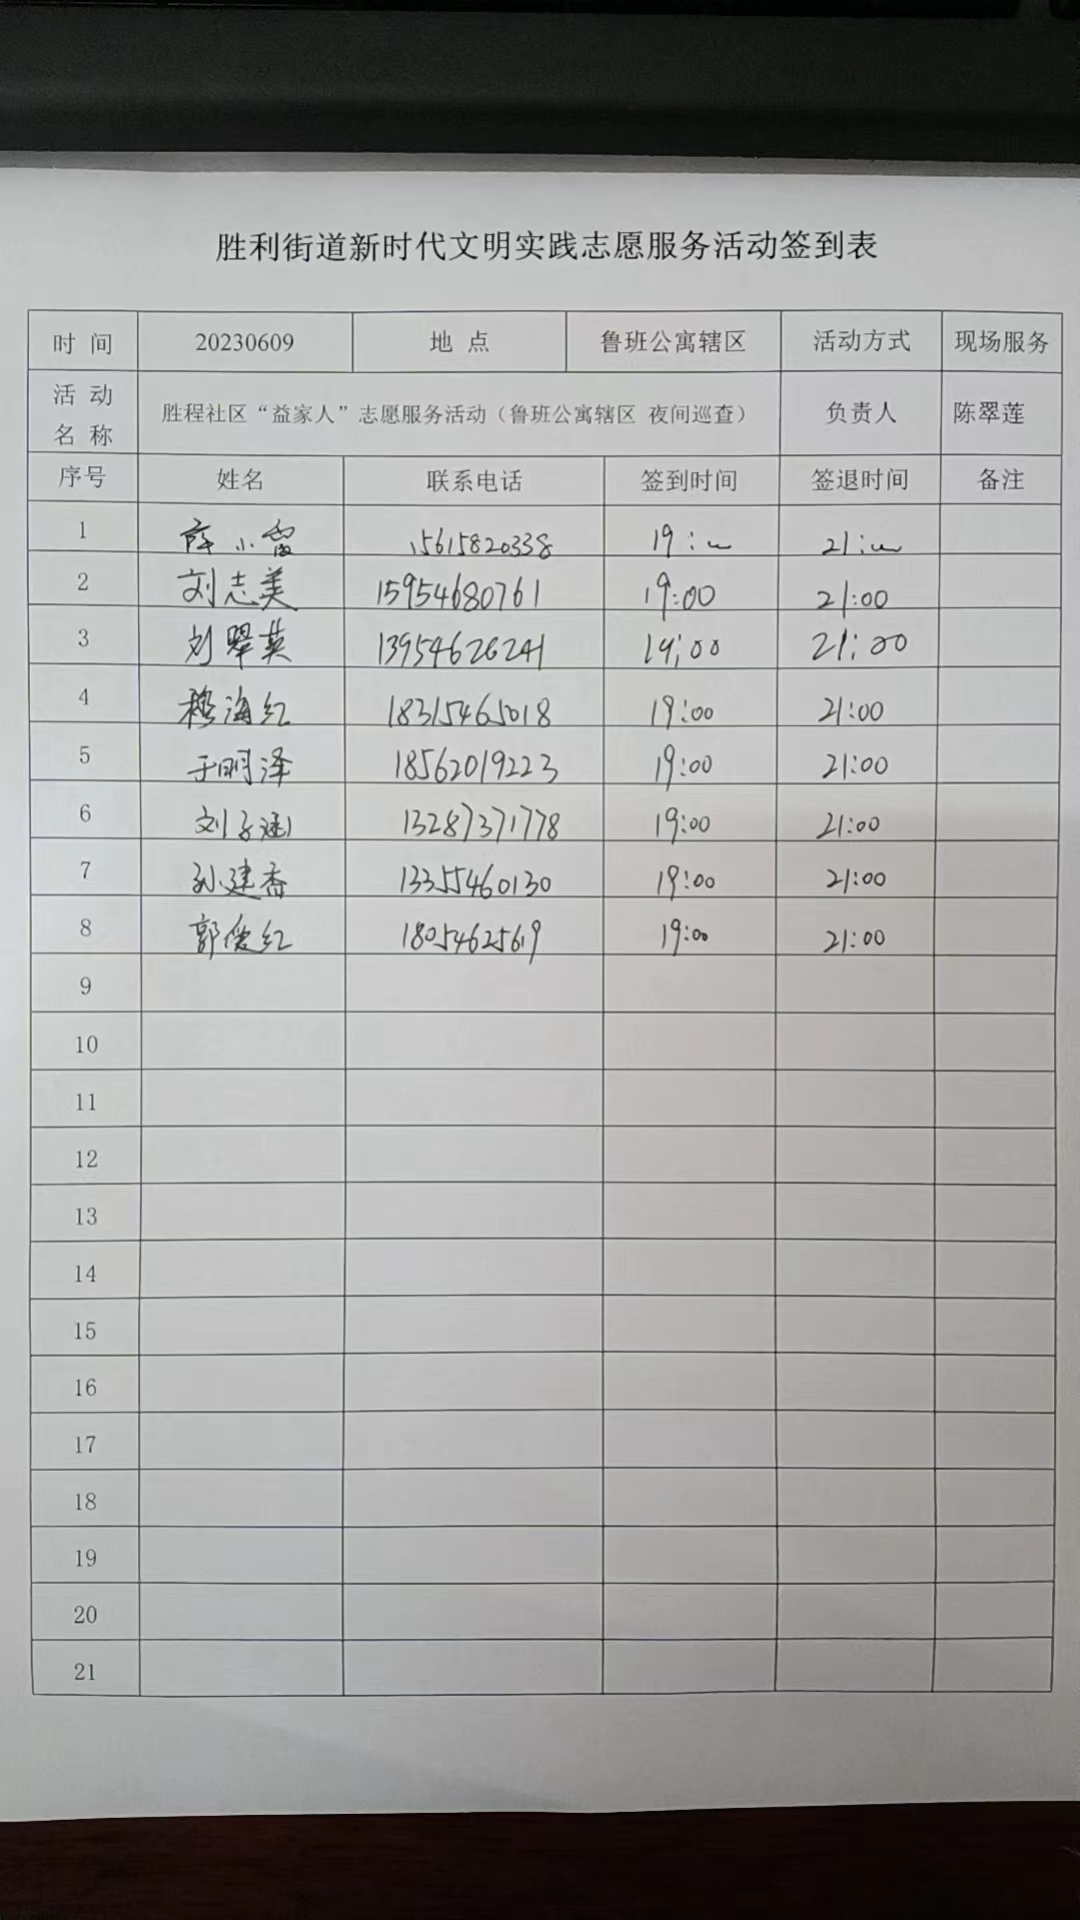 胜利街道新时代文明实践志愿服务活动签到表
时 间 20230609 地 点 鲁班公寓辖区 活动方式 现场服务
活 动 名 称 胜程社区“益家人”志愿服务活动（鲁班公寓辖区 夜间巡查） 负责人 陈翠莲
序号 姓名 联系电话 签到时间 签退时间 备注
1 薛小雷 15615820338 19: 21:
2 刘志美 15954680761 19:00 21:00
3 刘翠英 13954626241 19:00 21:00
4 穆海红 18315465018 19:00 21:00
5 于明泽 18562019223 19:00 21:00
6 刘子涵 13287371778 19:00 21:00
7 孙建香 13355460130 19:00 21:00
8 郭俊红 1805462569 19:00 21:00
9
10
11
12
13
14
15
16
17
18
19
20
21